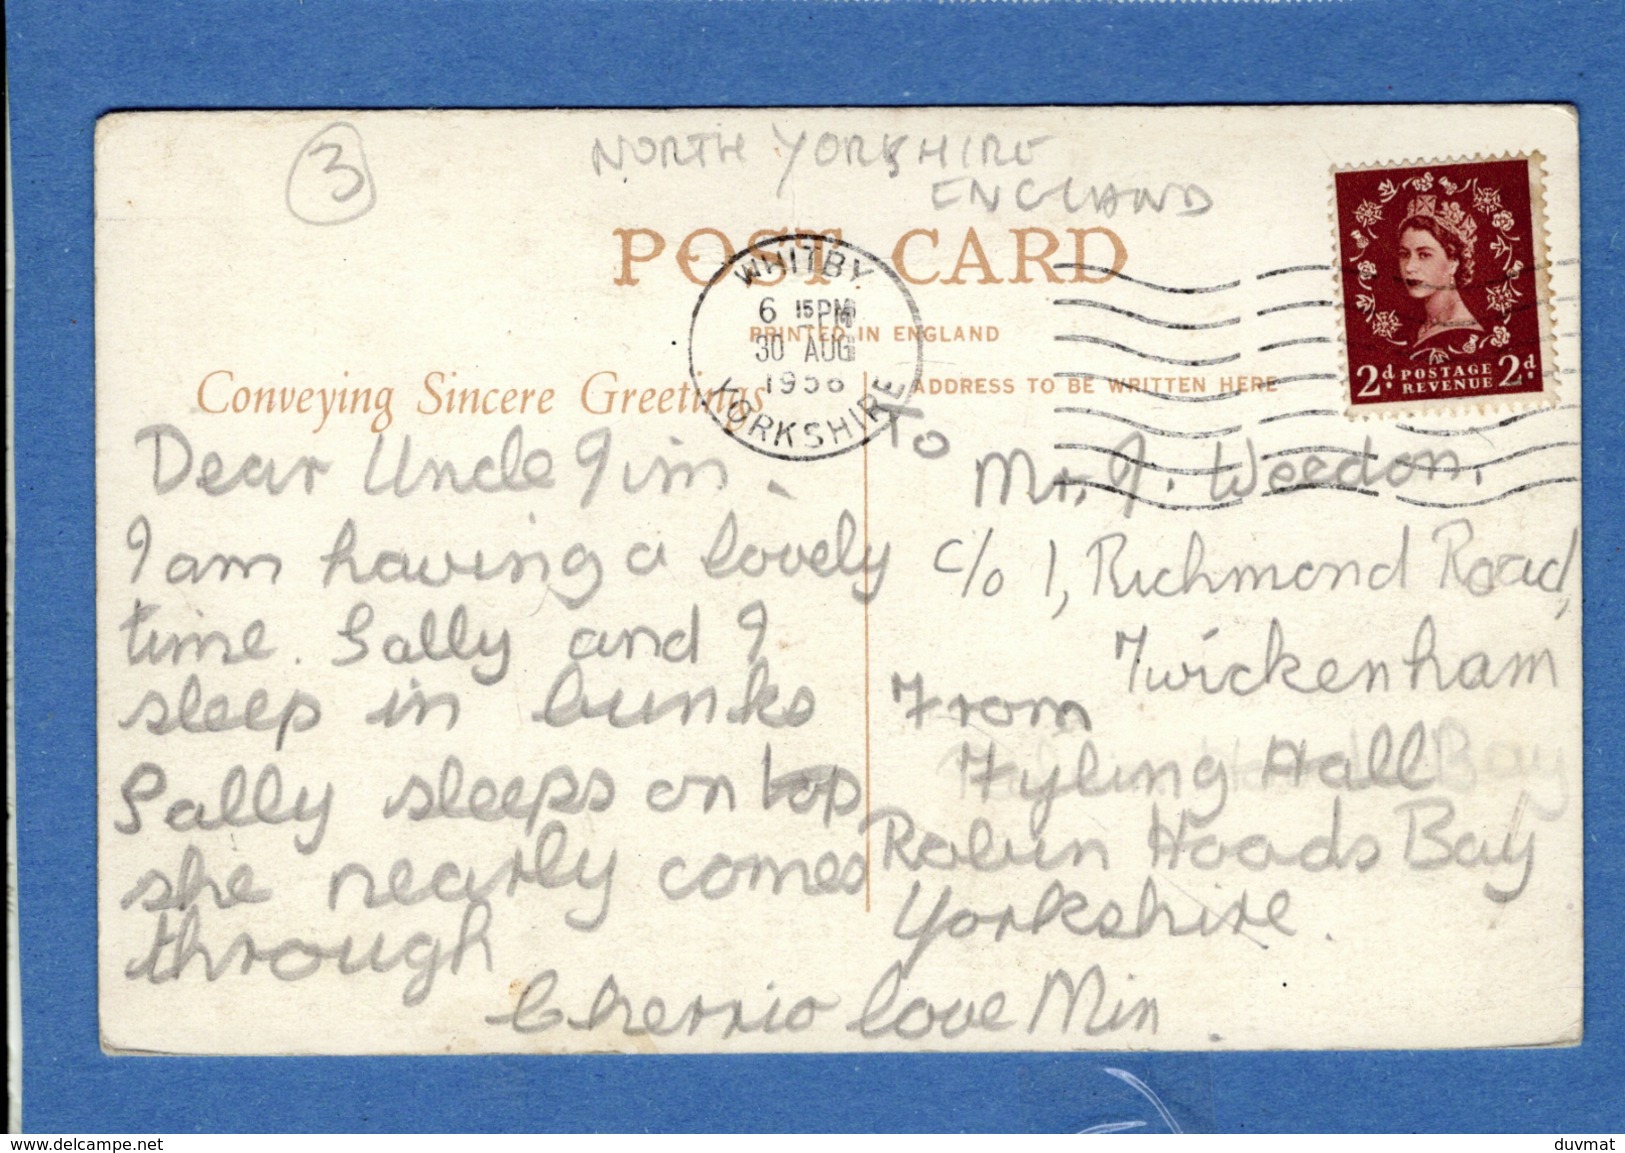 3
NORTH YORKSHIRE
ENGLAND
POST CARD
PRINTED IN ENGLAND
WHITBY
6 15 PM
30 AUG
YORKSHIRE
2d. POSTAGE REVENUE 2d.
Conveying Sincere Greetings
ADDRESS TO BE WRITTEN HERE
Dear Uncle Jim.
I am having a lovely
time. Sally and I
sleep in bunks
Sally sleeps on top
she nearly comes
through
Cherrio love Min.
To
Mr. J. Weedon.
c/o 1, Richmond Road,
Twickenham
From
Fyling Hall
Robin Hoods Bay
Yorkshire.
www.delcampe.net
duvmat